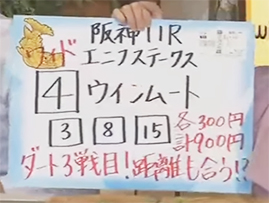 阪神11R
ワイド エニフステークス
4 ウインムート
3 8 15 各300円
計900円
ダート3戦目!距離も合う!?